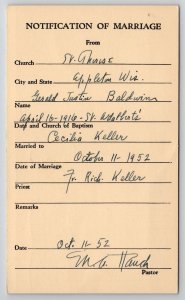 NOTIFICATION OF MARRIAGE
From
Church St. Therese
City and State Appleton Wis.
Gerald Justin Baldwin
Name
April 16-1916-St. Adalbert's
Date and Church of Baptism
Cecilia Keller
Married to
October 11-1952
Date of Marriage
Fr. Rich. Keller
Priest
Remarks
Date Oct. 11-52
M. A. Hauch
Pastor